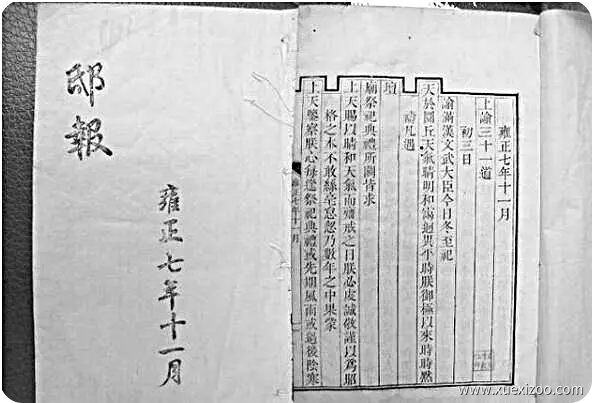 邸報
雍正七年十一月
雍正七年十一月
上諭三十一道
初三日
諭滿漢文武大臣今日冬至祀
天於圜丘天氣晴明和煦迥異平時朕御極以來時時默
禱凡遇
壇
廟祭祀典禮所關皆求
上天賜以晴和天氣而齋戒之日朕必虔誠敬謹以爲昭
格之本不敢絲毫怠忽乃數年之中果蒙
上天鑒察朕心每逢祭祀典禮或先期風雨或過後陰寒
www.xuexizoo.com